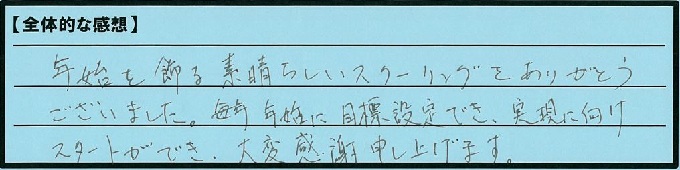 【全体的な感想】
年始を飾る素晴らしいスクーリングをありがとう
ございました。毎年年始に目標設定でき、実現に向け
スタートができ、大変感謝申し上げます。